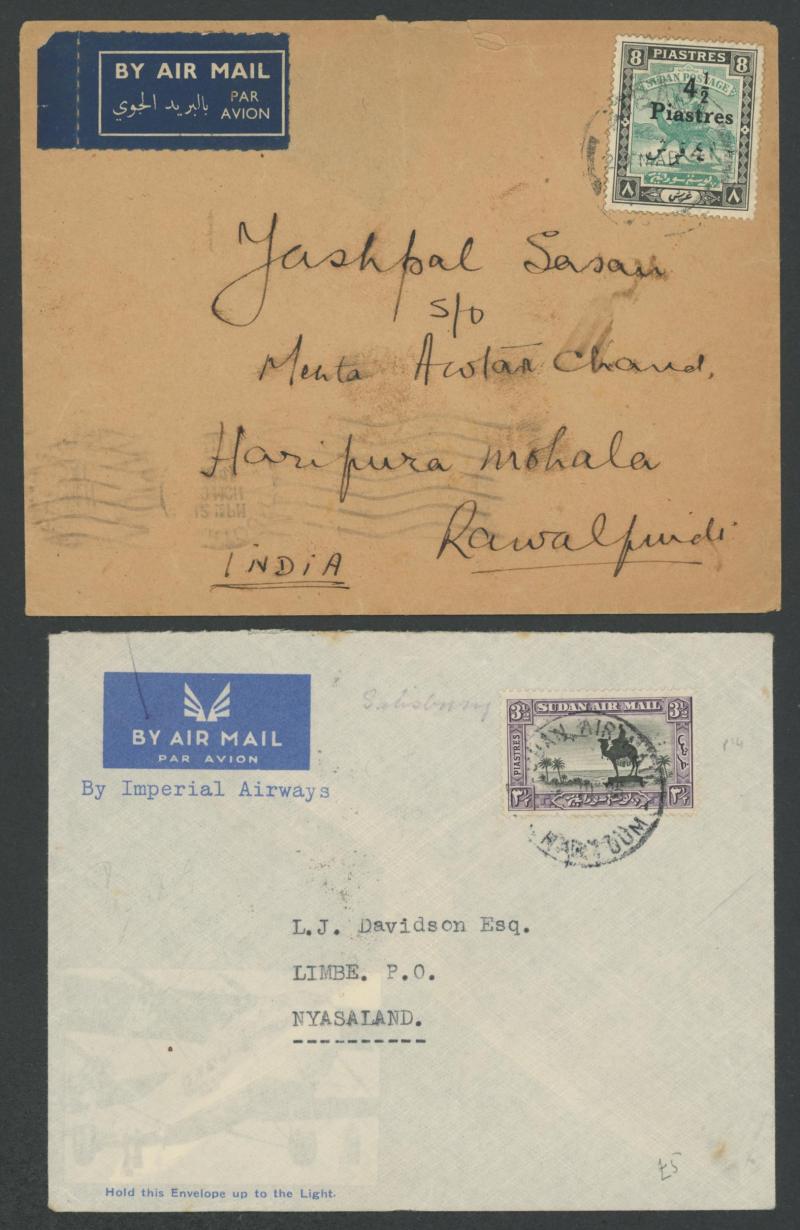 BY AIR MAIL
بالبريد الجوي PAR AVION
8 PIASTRES 8
SUDAN POSTAGE
4½
Piastres
٨ ٨
Yashpal Sasan
S/O
Mehta Awtar Chand,
Haripura Mohala
Rawalpindi
INDIA
BY AIR MAIL
PAR AVION
By Imperial Airways
Salisbury
3½ SUDAN AIR MAIL 3½
PIASTRES
KHARTOUM
L.J. Davidson Esq.
LIMBE. P.O.
NYASALAND.
£5
Hold this Envelope up to the Light.